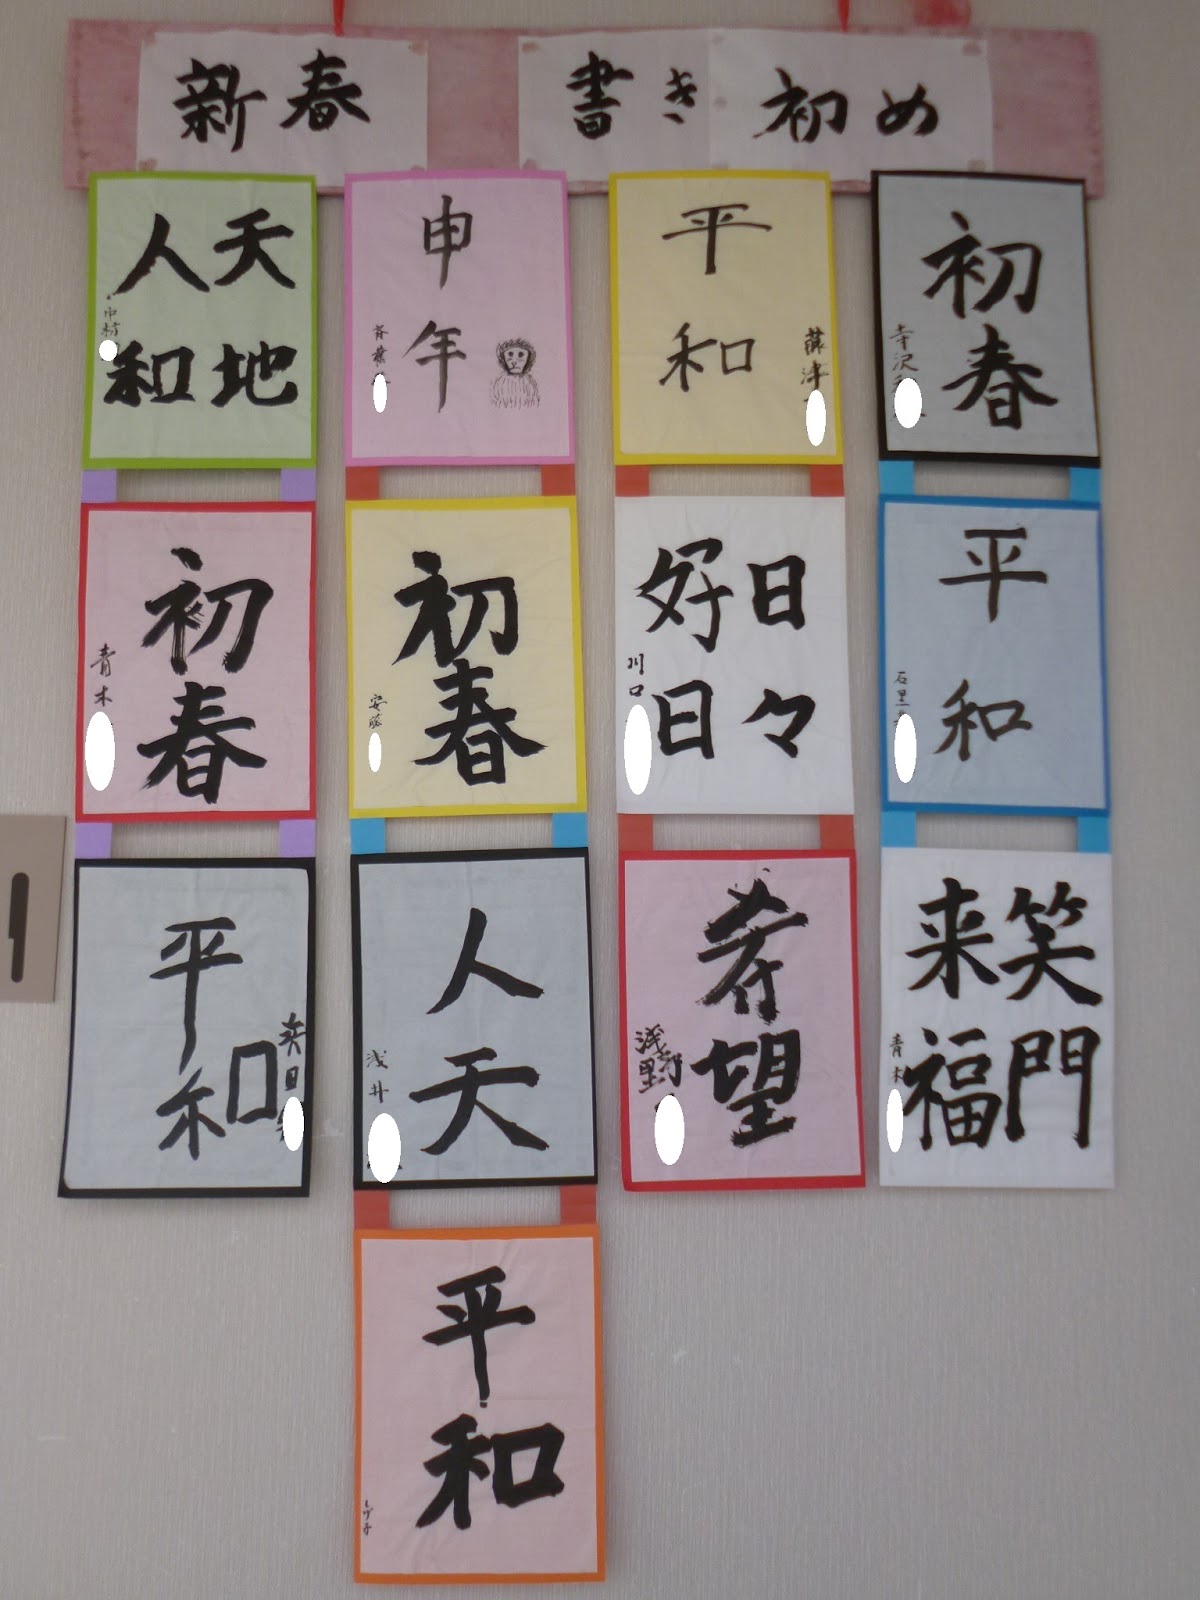 新春 書き初め
天地
人和
中村
申年
斉藤
平和
藤津
初春
寺沢
初春
青木
初春
安藤
日々
好日
川口
平和
石黒
平和
人天
浅井
希望
浅野
笑門
来福
青木
平和